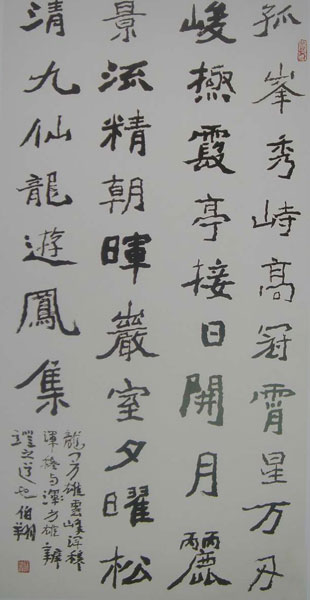 孤峯秀峙高冠霄星万刃
峻極霞亭接日開月麗
景流精朝暉巖室夕曜松
清九仙龍遊鳳集
龍門方雄雲峰渾穆
渾穆与方雄
之道也伯翔